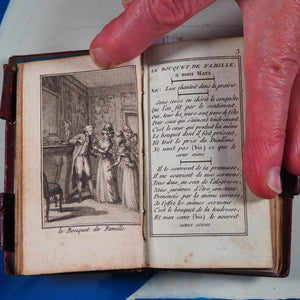 le Bouquet de Famille
3
LE BOUQUET DE FAMILLE,
a mon Mari.
Air: Lise chantoit dans la prairie
Sans cesse on chérit la conquête
Que l'on fit par le sentiment,
Oui, tous les jours sont jours de fête
Pour ceux qui s'aiment tendrement
C'est le cœur qui
Le bouquet dont il fait présent,
Et tout le prix du Diadème
Ne vaut pas (bis) ce que le
cœur sent
Il te souvient de ta promesse,
Il me souvient de mes sermens
Tous deux, au sein de l'allegresse,
Nous sommes d'être constans
Prononcés par la même
Je t'offre les mêmes sermens
C'est le bouquet de la tendresse,
Et mon cœur (bis) le nourrit
sans cesse